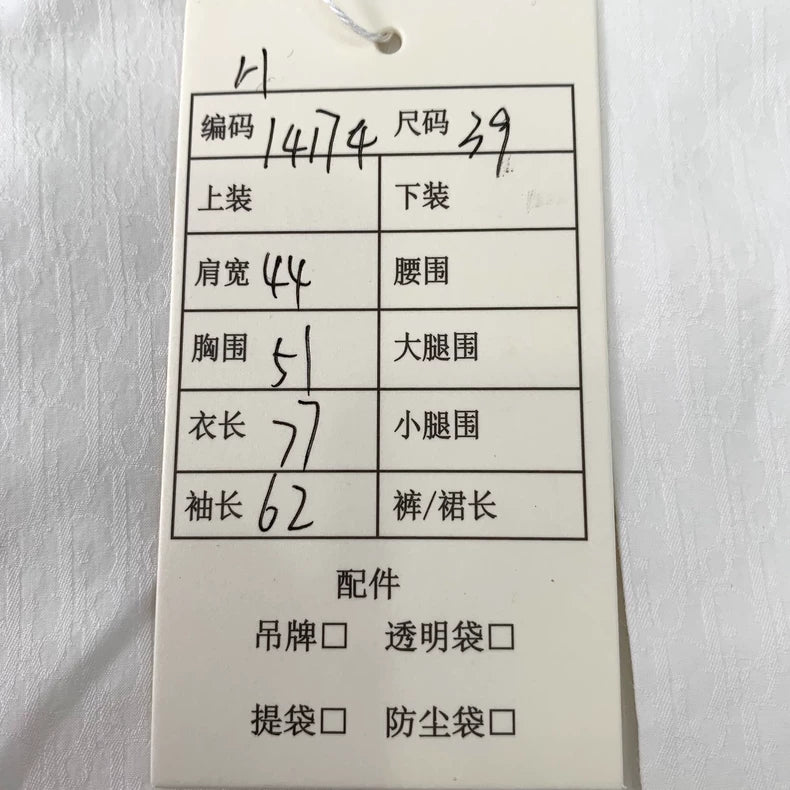 编码 14174 尺码 39
上装 下装
肩宽 44 腰围
胸围 51 大腿围
衣长 77 小腿围
袖长 62 裤/裙长
配件
吊牌□ 透明袋□
提袋□ 防尘袋□